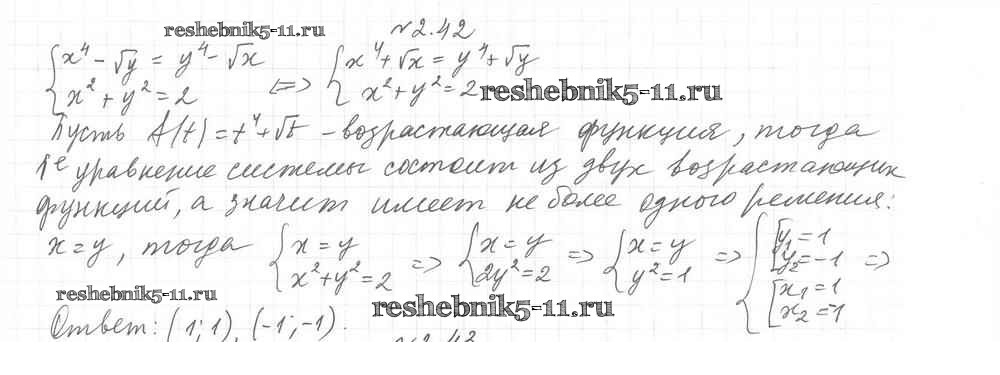 reshebnik5-11.ru №2.42
{x⁴ - √y = y⁴ - √x <=> {x⁴ + √x = y⁴ + √y
x² + y² = 2 x² + y² = 2 reshebnik5-11.ru
Пусть A(t) = t⁴ + √t - возрастающая функция, тогда
1е уравнение системы состоит из двух возрастающих
функций, а значит имеет не более одного решения:
x = y, тогда {x = y => {x = y => {x = y => {[y₁ = 1 =>
x² + y² = 2 2y² = 2 y² = 1 y₂ = -1
[x₁ = 1
x₂ = -1
reshebnik5-11.ru reshebnik5-11.ru
Ответ: (1; 1), (-1; -1).
№2.43